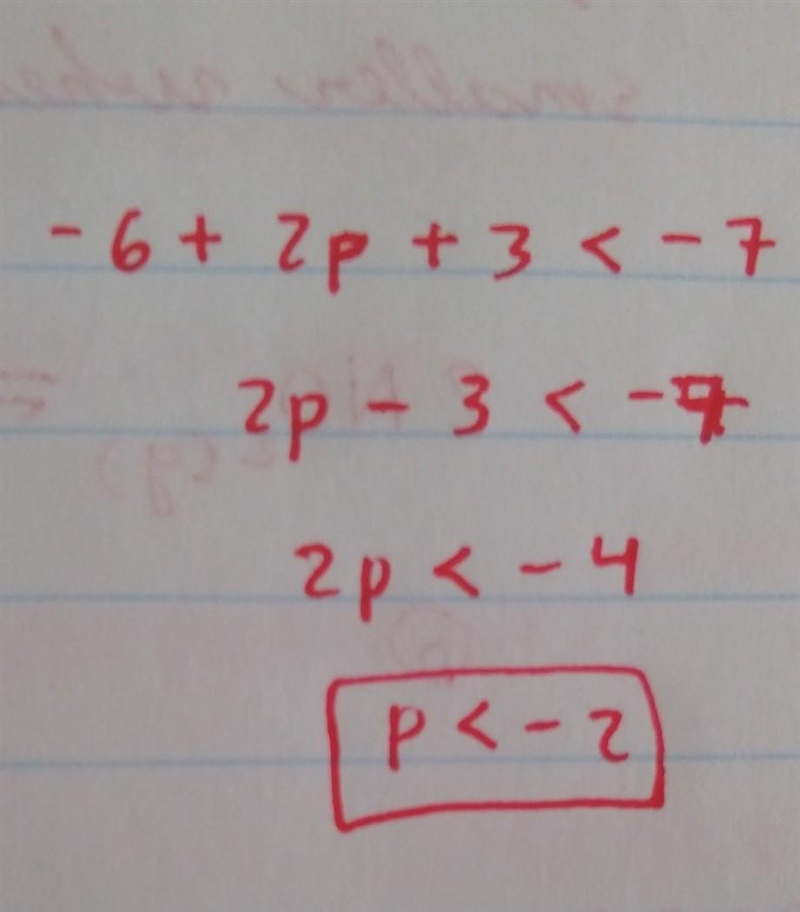 -6 + 2p + 3 < -7
2p - 3 < -7
2p < -4
p < -2